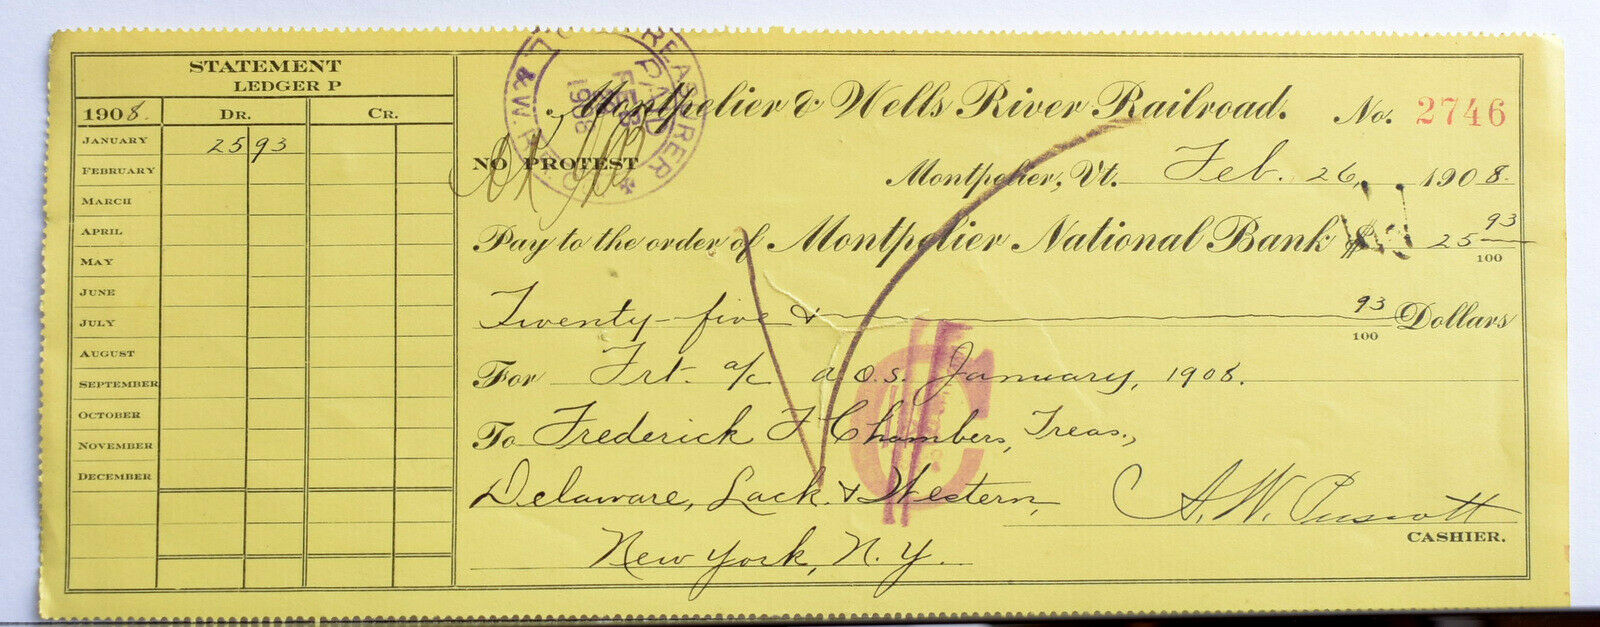 STATEMENT
LEDGER P
1908. DR. CR.
JANUARY 25 93
FEBRUARY
MARCH
APRIL
MAY
JUNE
JULY
AUGUST
SEPTEMBER
OCTOBER
NOVEMBER
DECEMBER
TREASURER
PAID
FEB
1908
Montpelier & Wells River Railroad. No. 2746
NO PROTEST
Montpelier, Vt. Feb. 26, 1908.
Pay to the order of Montpelier National Bank $ 25 93/100
Twenty-five & 93/100 Dollars
For Frt. a/c a o.s. January, 1908.
To Frederick F Chambers, Treas.,
Delaware, Lack. & Western,
New York, N.Y.
CASHIER.